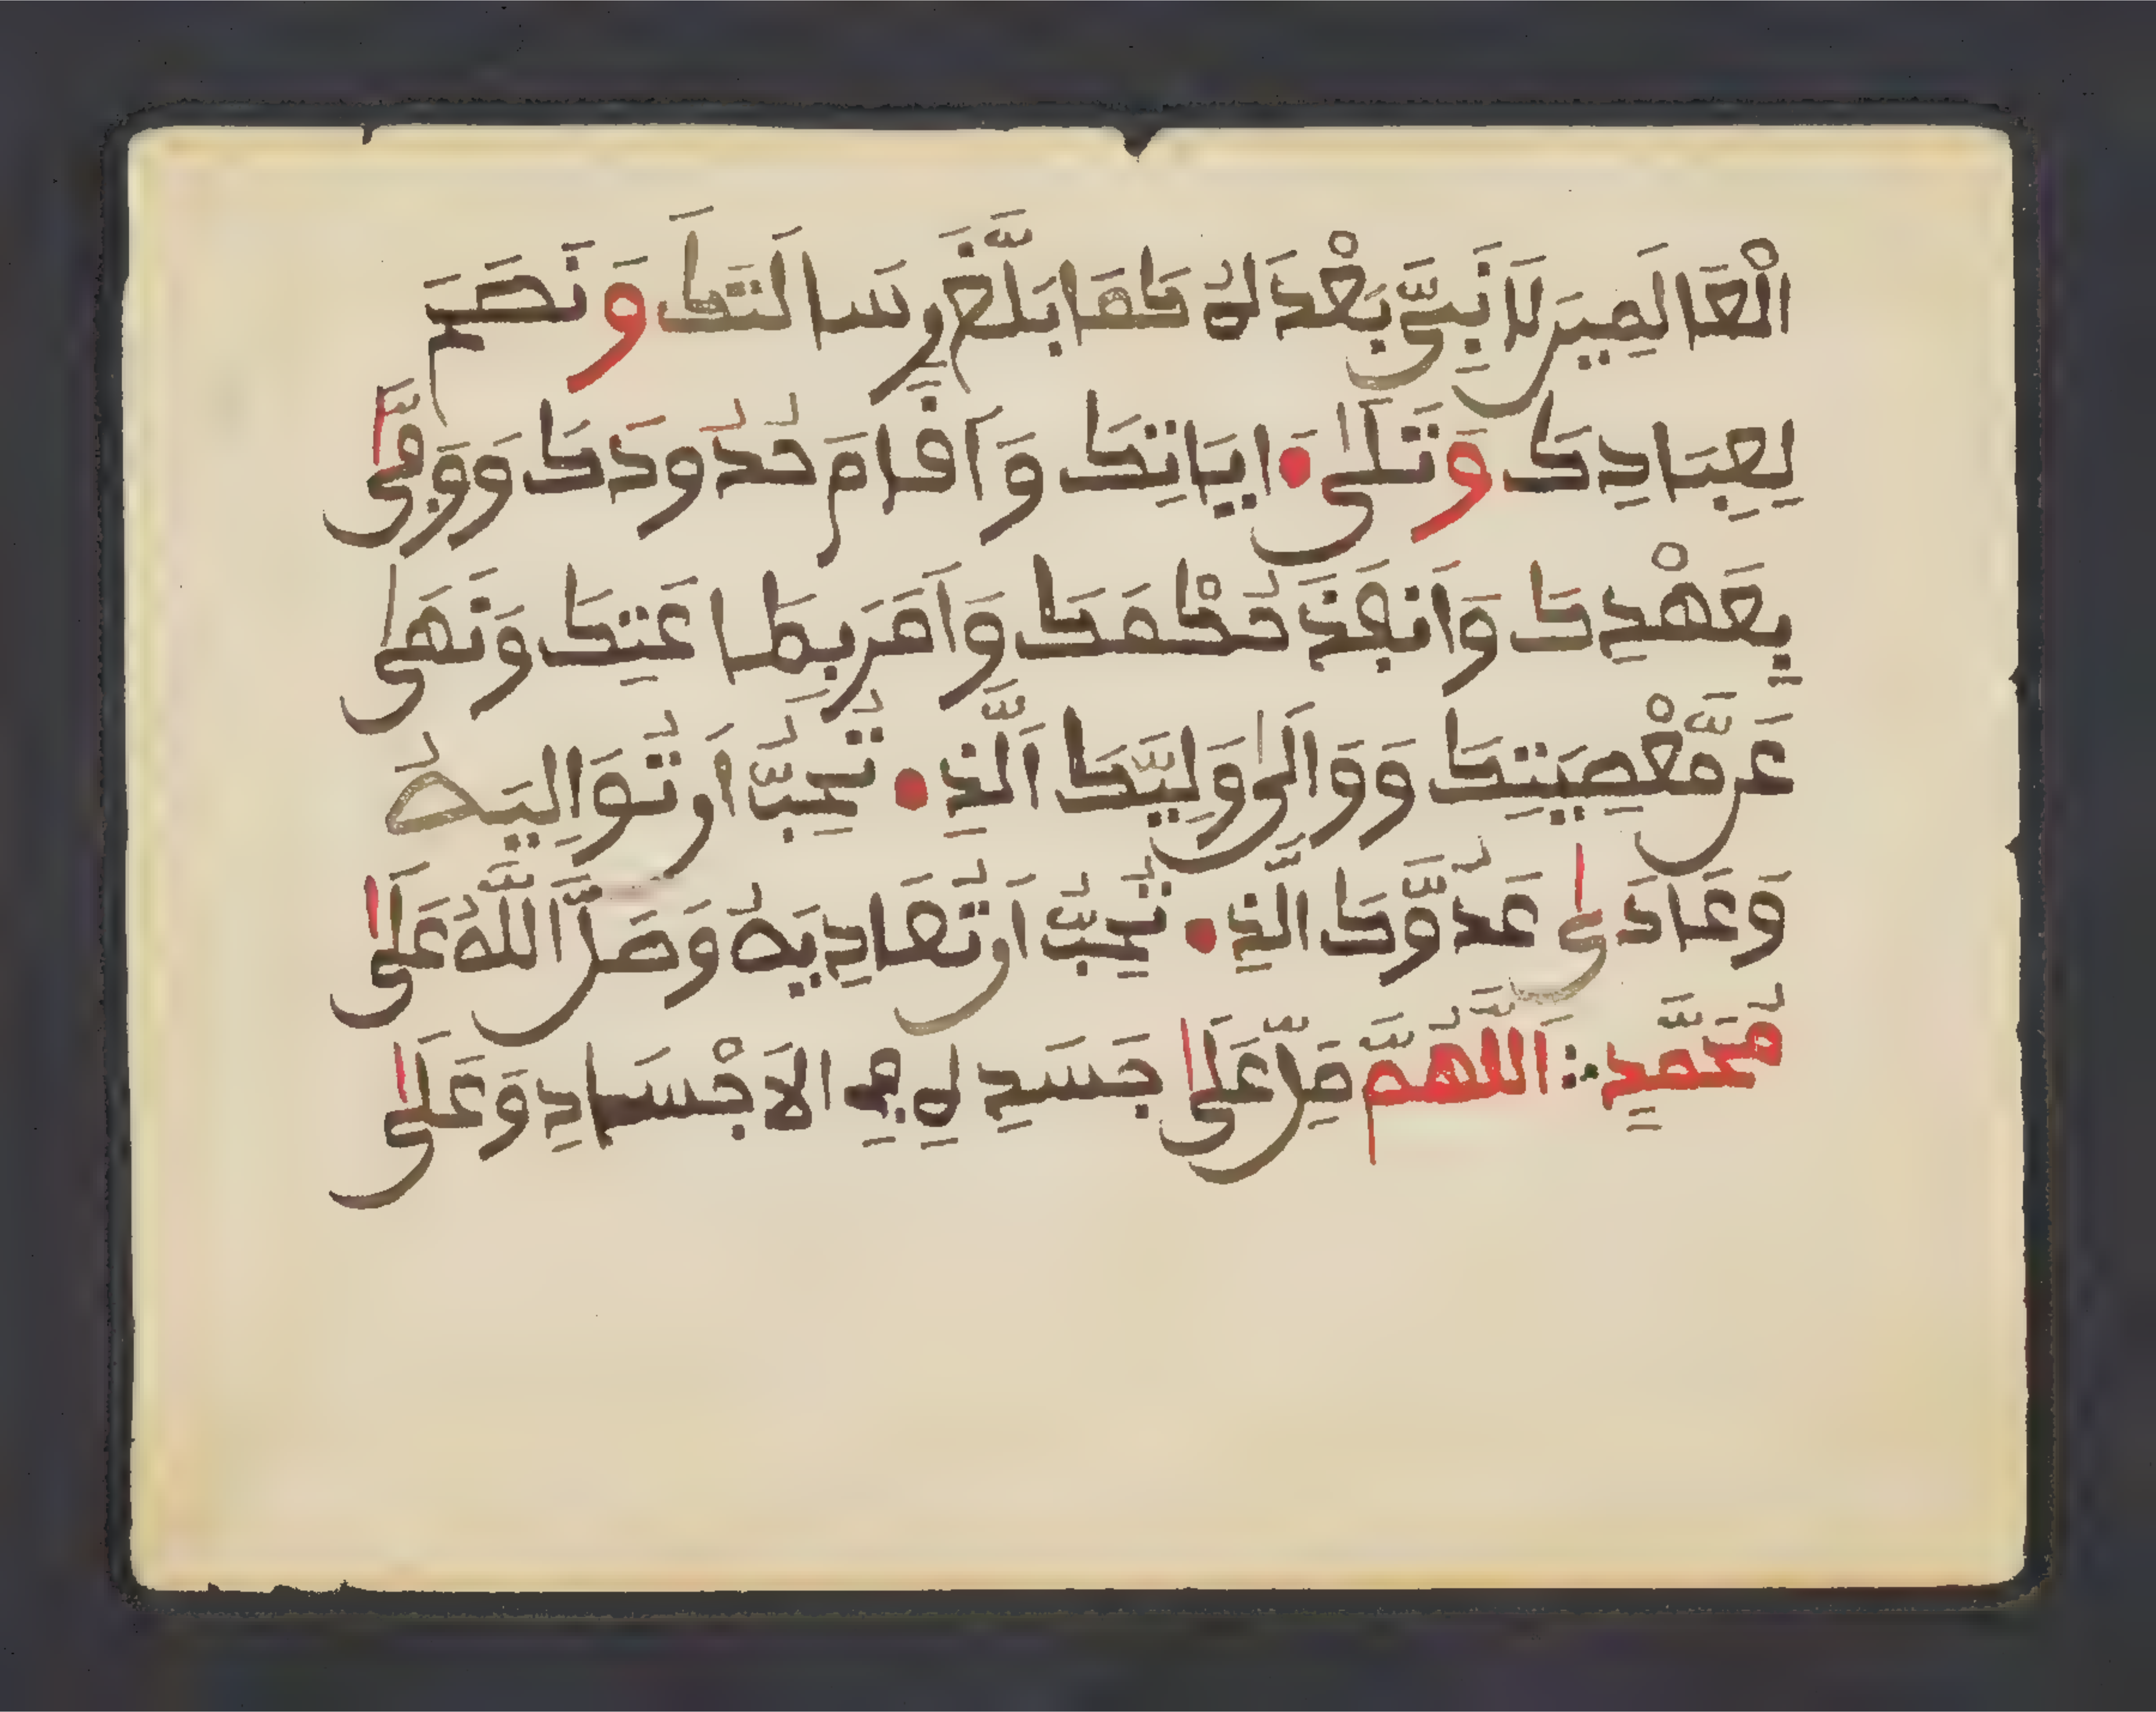 الْعَالَمِينَ لَا نَبِيَّ بَعْدَهُ كَمَا بَلَّغَ رِسَالَتَكَ وَنَصَحَ
لِعِبَادِكَ وَتَلَى ءَايَاتِكَ وَأَقَامَ حُدُودَكَ وَوَفَّى
بِعَهْدِكَ وَأَنفَذَ حُكْمَكَ وَأَمَرَ بِطَاعَتِكَ وَنَهَى
عَن مَّعْصِيَتِكَ وَوَالَى وَلِيَّكَ الَّذِي تُحِبُّ أَن تُوَالِيَهُ
وَعَادَى عَدُوَّكَ الَّذِي تُحِبُّ أَن تُعَادِيَهُ وَصَلَّ اللَّهُ عَلَى
مُحَمَّدٍ ∴ اللَّهُمَّ صَلِّ عَلَى جَسَدِهِ فِي الْأَجْسَادِ وَعَلَى